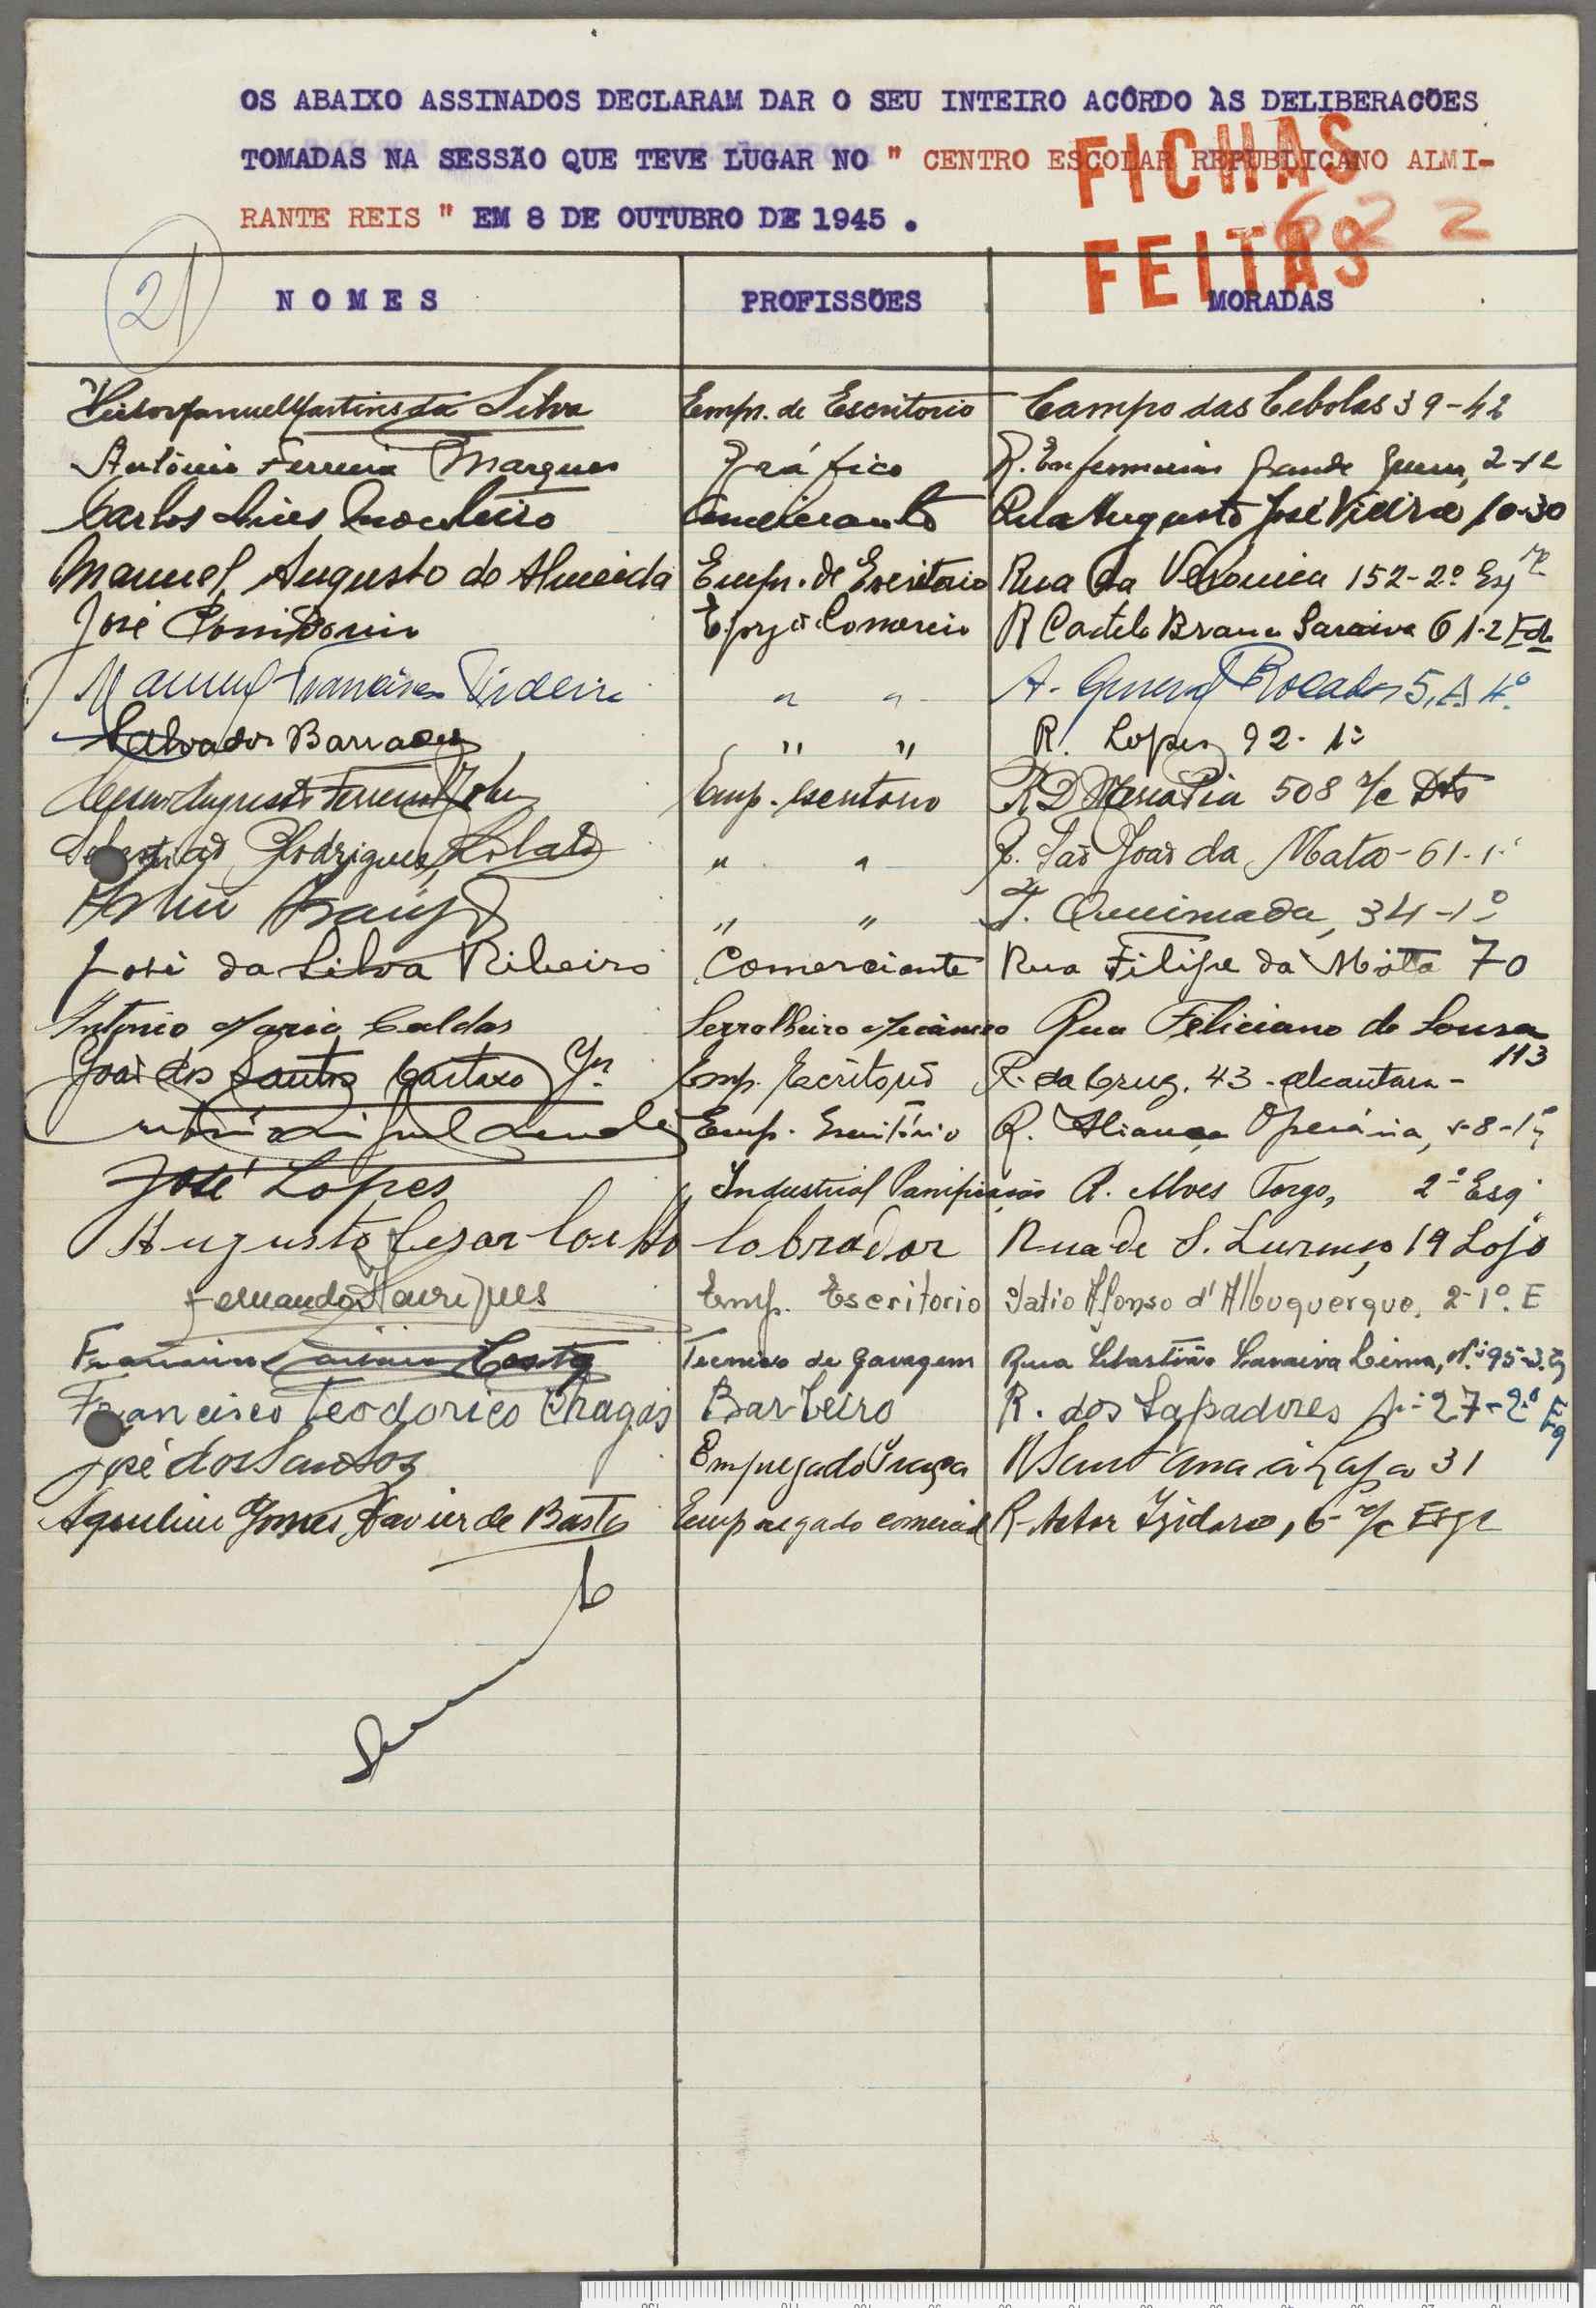 OS ABAIXO ASSINADOS DECLARAM DAR O SEU INTEIRO ACÔRDO ÀS DELIBERACÕES
TOMADAS NA SESSÃO QUE TEVE LUGAR NO " CENTRO ESCOLAR REPUBLICANO ALMI-
RANTE REIS " EM 8 DE OUTUBRO DE 1945 .
FICHAS
FEITAS
622
21
NOMES PROFISSÕES MORADAS
Victor Manuel Martins da Silva Empr. de Escritorio Campo das Cebolas 39-42
António Ferreira Marques Gráfico R. Enfermeiras Grande Guerra, 2-1º
Carlos Comerciante Rua Augusto José Vieira 10-30
Manuel Augusto de Almeida Empr. de Escritorio Rua da Veronica 152-2º Esq
José Comercio R Castelo Branco Saraiva 61-2 Edo
Manuel Francisco " " A. General Roçadas 5, A 4º
Salvador Barradas " " R. Lopes 92-1º
Augusto Ferreira Emp. escritorio R D Maria Pia 508 r/c Dto
Sebastião Rodrigues Lobato " " R. São João da Mata-61-1º
Araújo " " T. Queimada, 34-1º
José da Silva Ribeiro Comerciante Rua Filipe da Mata 70
Antonio Maria Caldas Serralheiro Mecanico Rua Feliciano de Sousa 113
João dos Santos Cartaxo Jr. Emp. Escritorio R. da Cruz. 43-Alcantara-
Emp. Escritório R. Aliança Operária,
José Lopes Industrial Panificação R. Alves Torgo, 2º Esq.
Augusto Cesar Couto Labrador Rua de S. Lourenço 19 Loja
Fernando Henriques Emp. Escritorio Patio Afonso d'Albuquerque, 2-1º. E
Costa Tecnico de Garagem Rua Sebastião Saraiva Lima, Nº 95-3.
Francisco Teodorico Chagas Barbeiro R. dos Sapadores Nº 27-2º Esq
José dos Santos Empregado Praça R Sant'Ana à Lapa 31
Aquilino Gomes Xavier de Basto Empregado comercial R. Actor Izidoro, 6-r/c Esqº